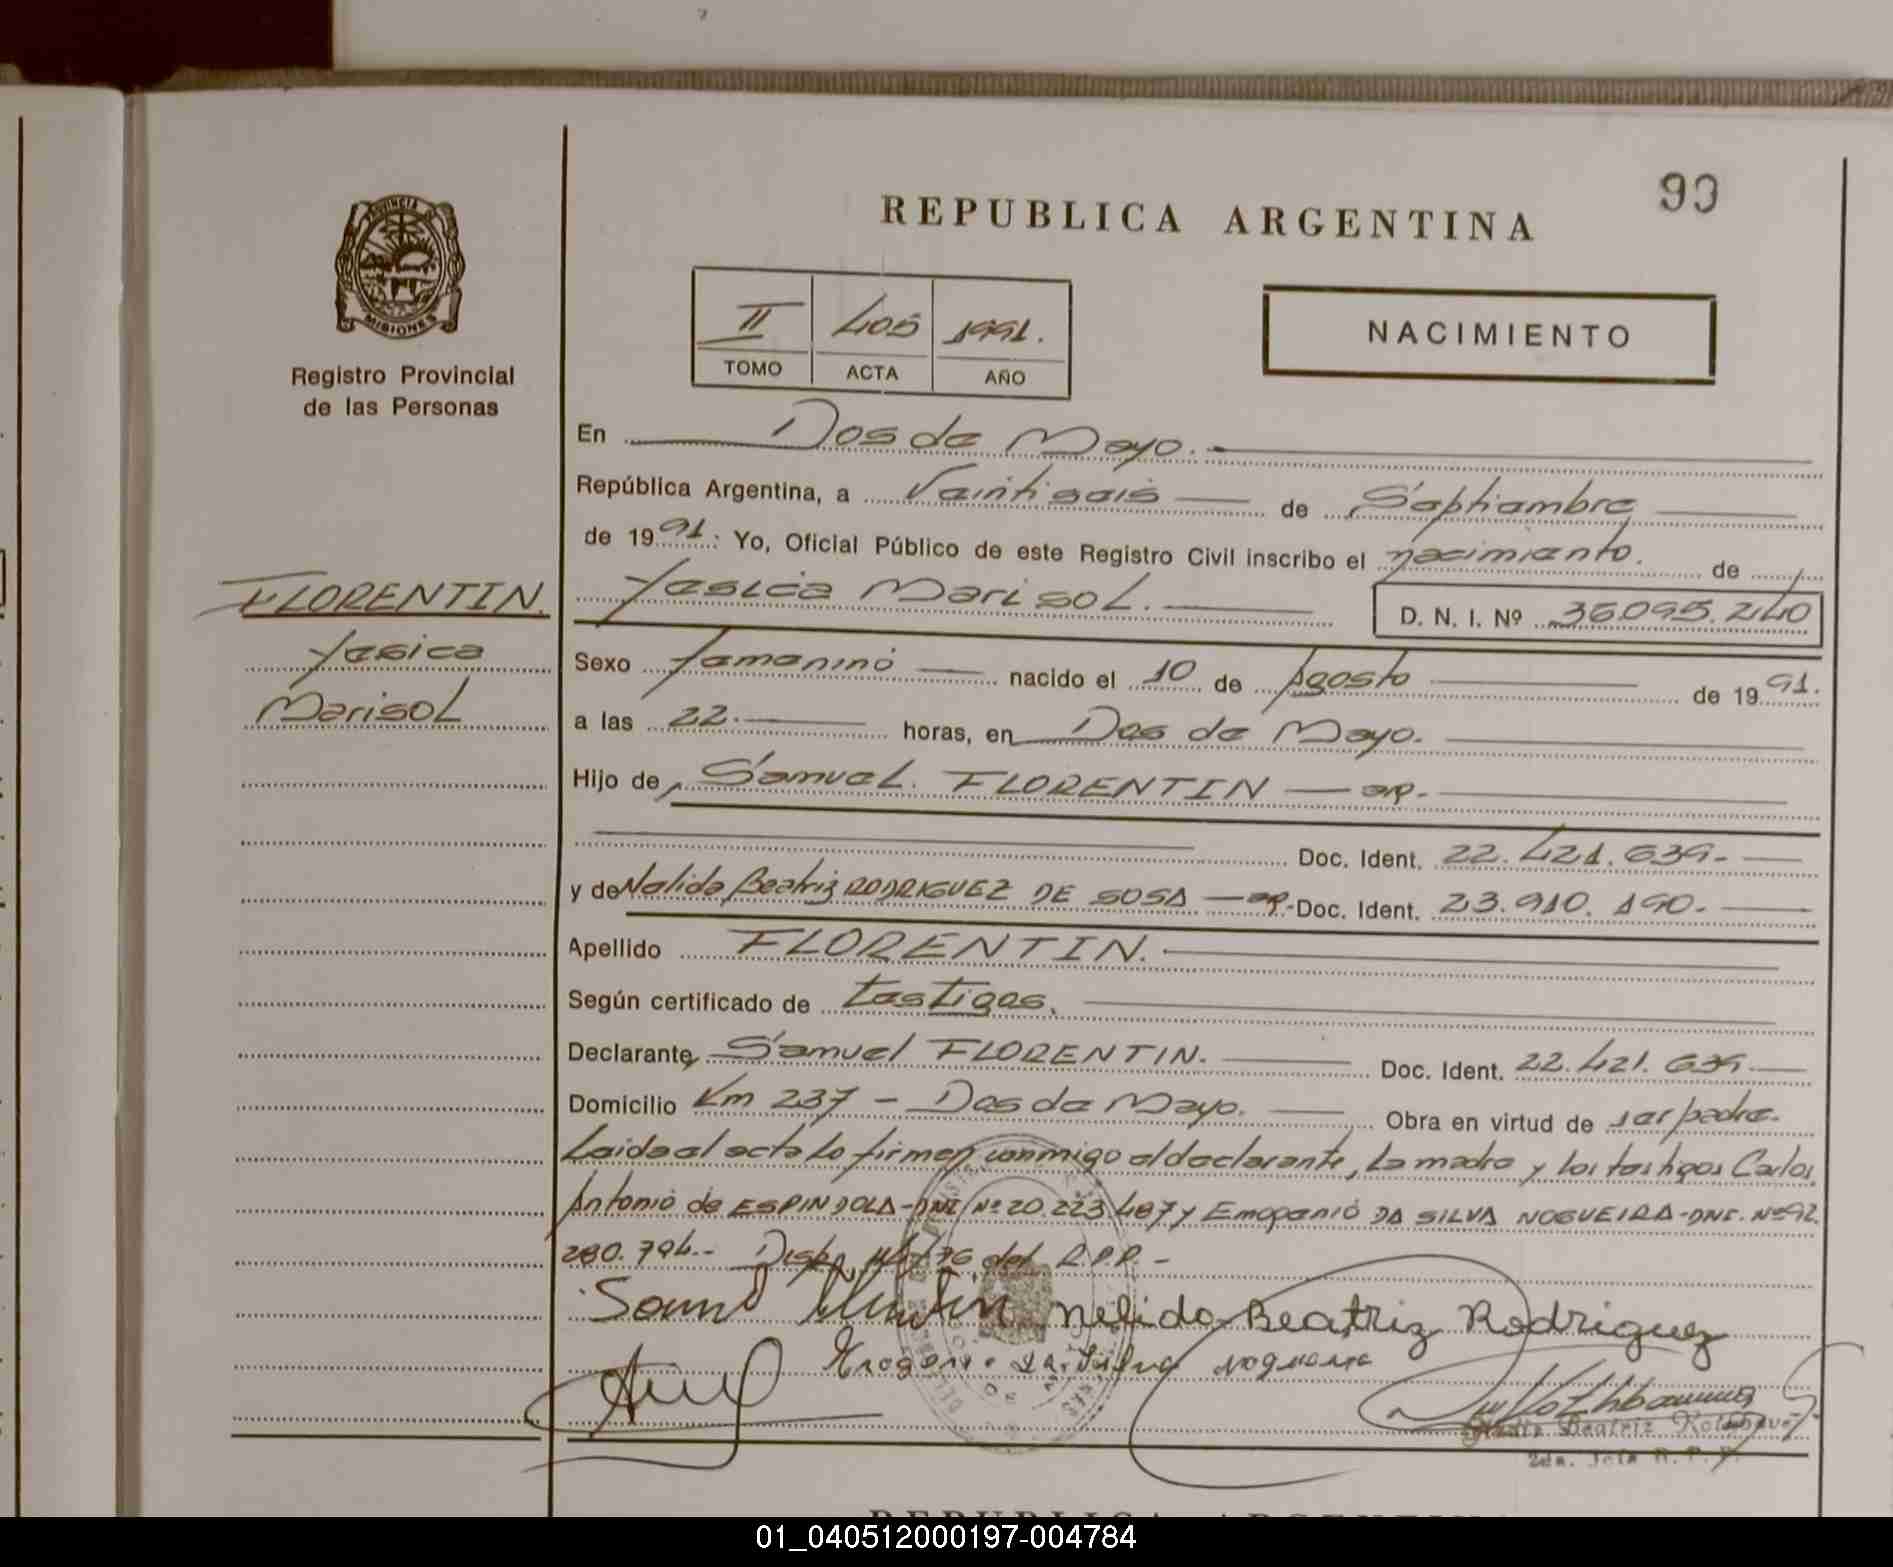 93
REPUBLICA ARGENTINA
PROVINCIA D
MISIONES
Registro Provincial
de las Personas
II 405 1991.
TOMO ACTA AÑO
NACIMIENTO
En Dos de Mayo.-
República Argentina, a Veintiseis de Septiembre
de 1991: Yo, Oficial Público de este Registro Civil inscribo el nacimiento. de
FLORENTIN.
Yesica
Marisol
Yesica Marisol. D. N. I. Nº 36.095.240
Sexo femenino nacido el 10 de Agosto de 1991.
a las 22. horas, en Dos de Mayo.
Hijo de Samuel. FLORENTIN — ar.
Doc. Ident. 22.421.639.-
y de Nelida Beatriz RODRIGUEZ DE SOSA — ar.- Doc. Ident. 23.910.190.-
Apellido FLORENTIN.
Según certificado de testigos.
Declarante, Samuel FLORENTIN. Doc. Ident. 22.421.639.
Domicilio Km 237 - Dos de Mayo. Obra en virtud de ser padre.
Leida el acta lo firman conmigo el declarante, la madre y los testigos Carlos
Antonio de ESPINDOLA-DNI Nº 20.223.487 y Emogenio DA SILVA NOGUEIRA-DNI. Nº 92.
280.794.- del R.P.P.-
Nelida Beatriz Rodriguez
Da Silva
Beatriz
2da. Jefa R. P. P.
REPUBLICA ARGENTINA
01_040512000197-004784